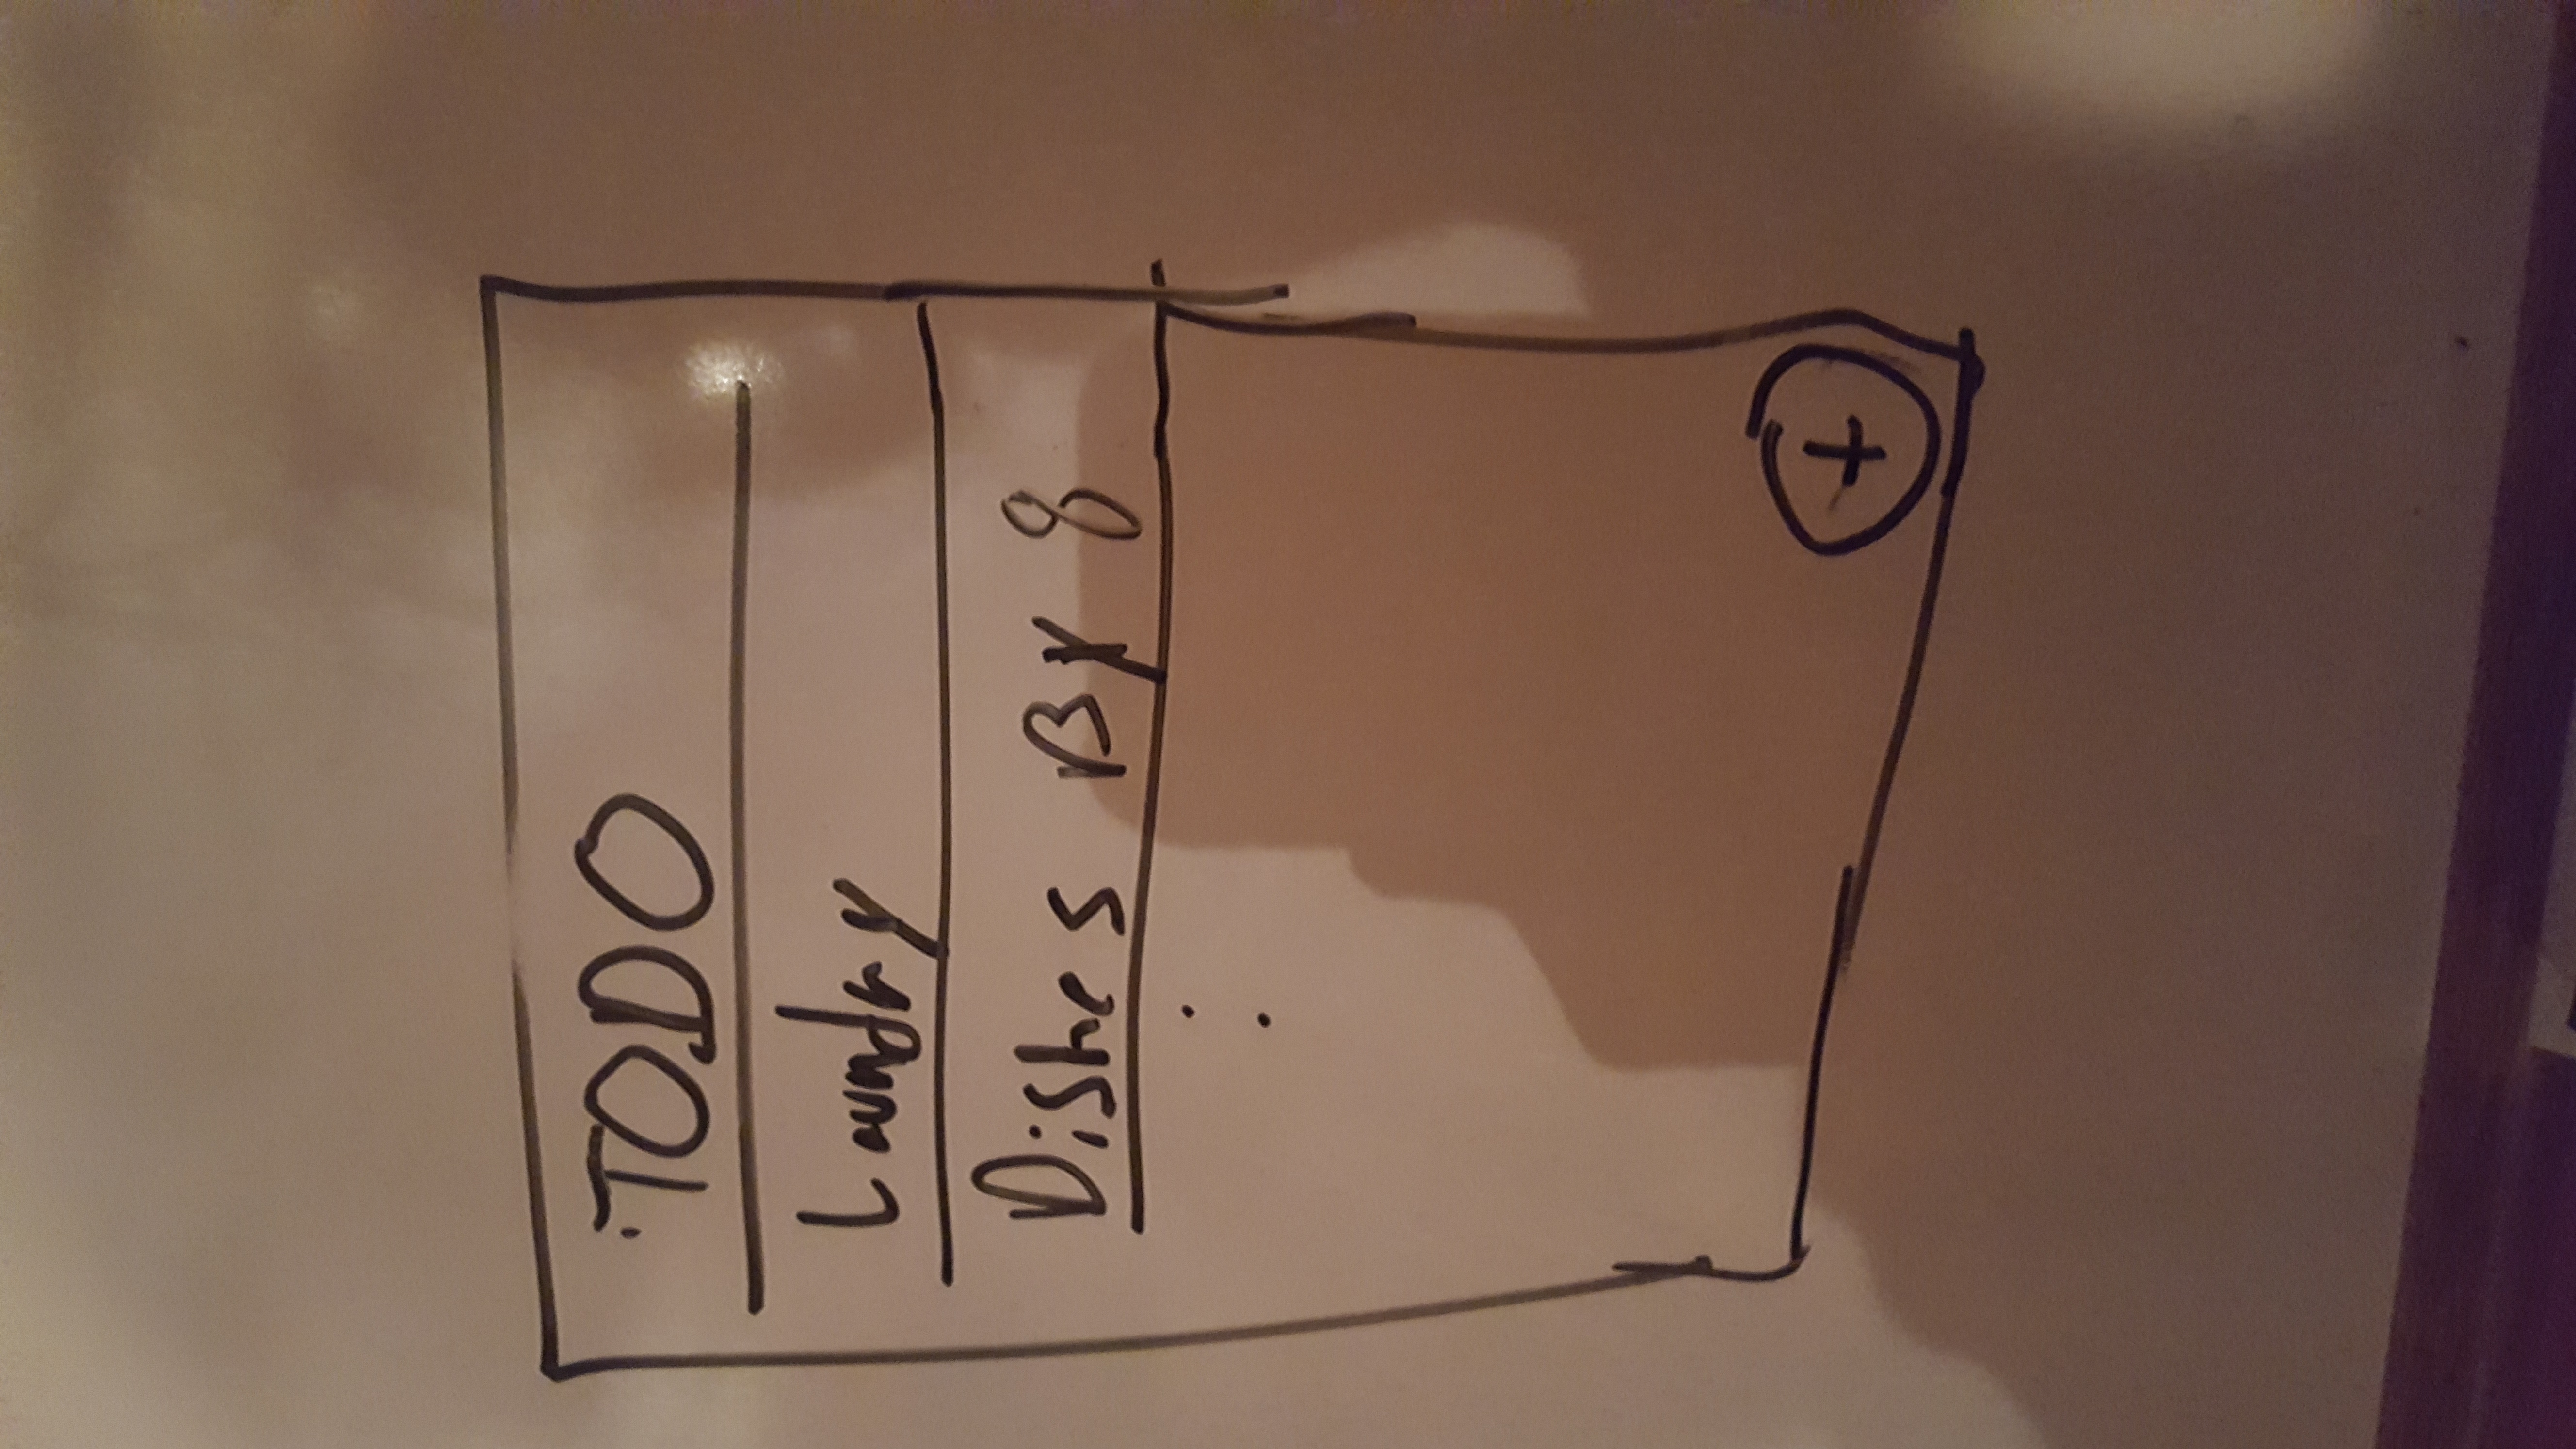 TODO
Laundry
Dishes By 8
:
+